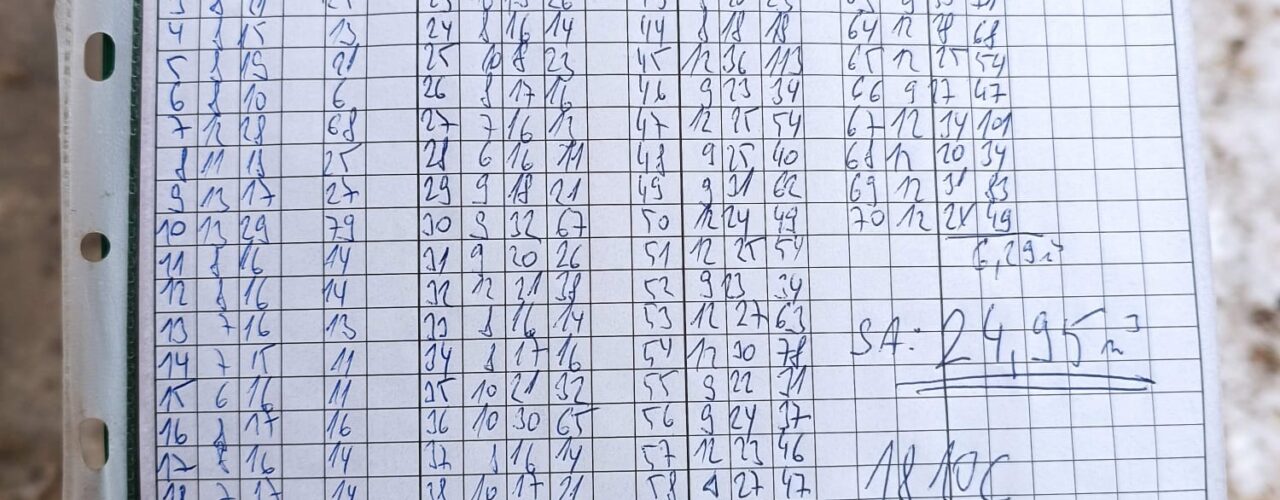 4 8 15 13 24 8 16 14 44 8 18 18 64 12 28 68
5 8 19 21 25 10 8 23 45 12 36 113 65 12 25 54
6 8 10 6 26 8 17 16 46 9 23 34 66 9 27 47
7 12 28 68 27 7 16 13 47 12 25 54 67 12 34 101
8 11 18 25 28 6 16 11 48 9 25 40 68 12 20 34
9 13 17 27 29 9 18 21 49 9 31 62 69 12 31 83
10 13 29 79 30 9 32 67 50 12 24 49 70 12 24 49
11 8 16 14 31 9 20 26 51 12 25 54 6,29
12 8 16 14 32 12 21 38 52 9 23 34
13 7 16 13 33 8 16 14 53 12 27 63 SA: 24,95 m³
14 7 15 11 34 8 17 16 54 12 30 78
15 6 16 11 35 10 21 32 55 9 22 31
16 8 17 16 36 10 30 65 56 9 24 37
17 8 16 14 37 8 16 14 57 12 23 46 18 10
18 7 17 14 38 10 17 21 58 27 47